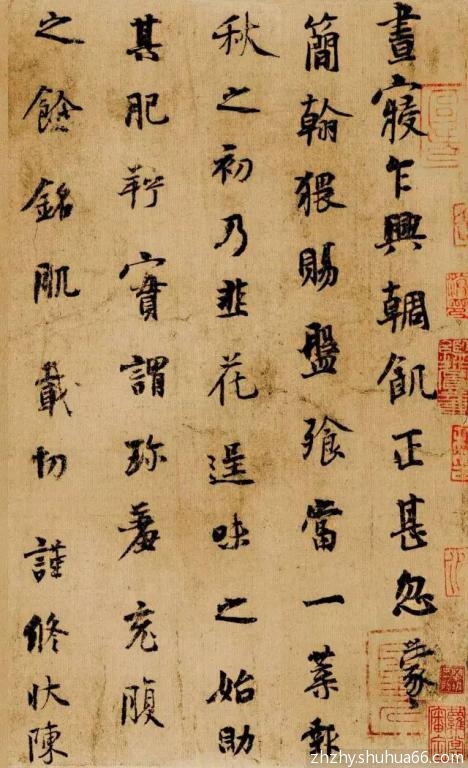 晝寢乍興輖飢正甚忽蒙
簡翰猥賜盤飧當一葉報
秋之初乃韭花逞味之始助
其肥羜實謂珍羞充腹
之餘銘肌載切謹修狀陳
zhzhy.shuhua66.com